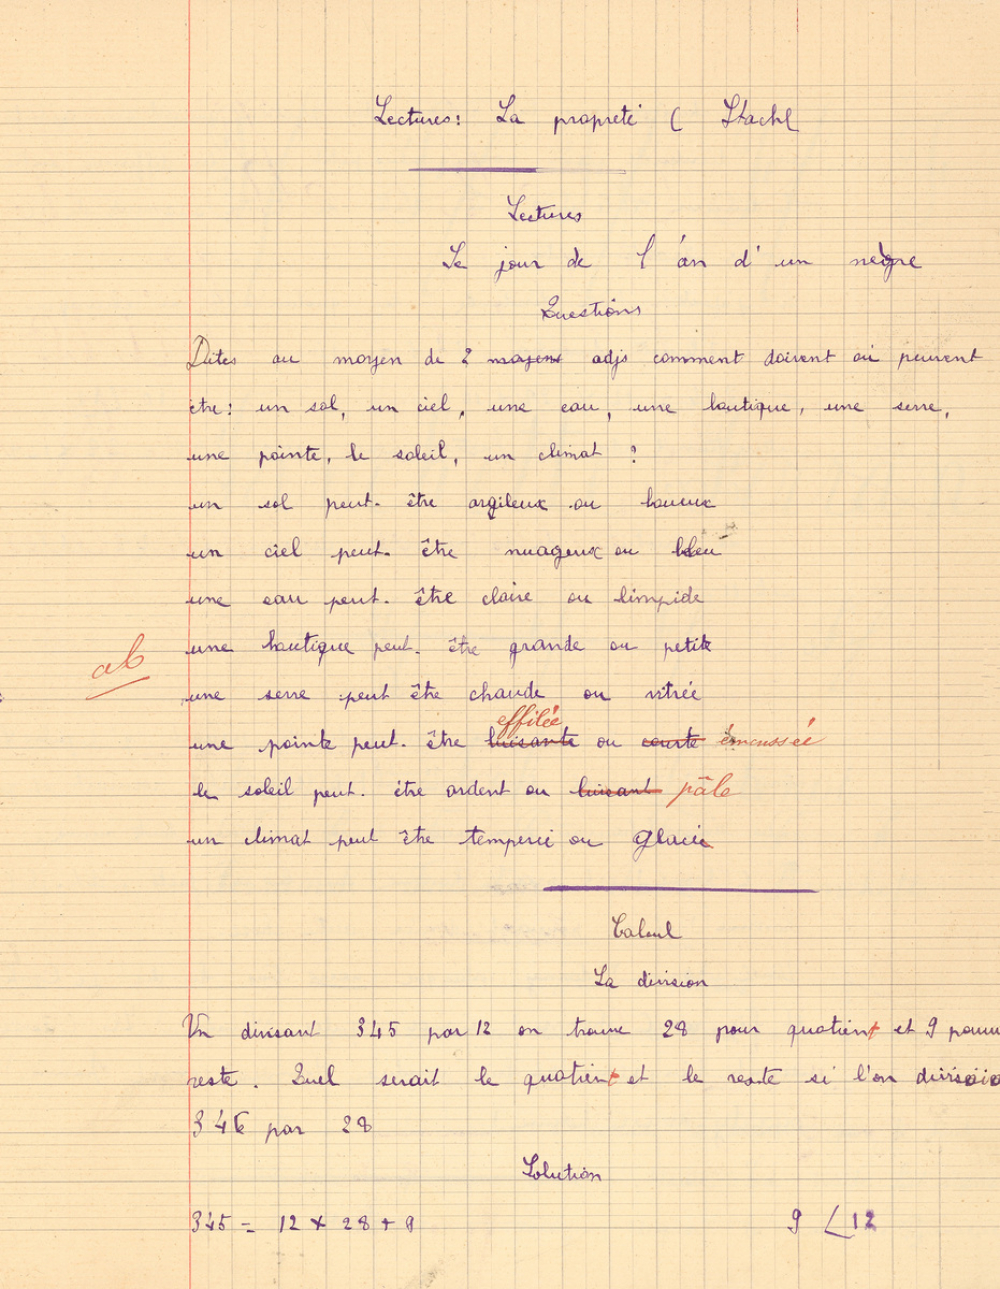 Lectures: La propreté ( Stachl
Lectures
Le jour de l'an d'un nègre
Questions
Dites au moyen de 2 moyens adjs comment doivent où peuvent
être: un sol, un ciel, une eau, une boutique, une serre,
une pointe, le soleil, un climat ?
un sol peut-être argileux ou boueux
un ciel peut-être nuageux ou bleu
une eau peut-être claire ou limpide
ab
une boutique peut-être grande ou petite
une serre peut être chaude ou vitrée
effilée
une pointe peut-être luisante ou courte émoussée
le soleil peut-être ardent ou luisant pâle
un climat peut être temperé ou glacié
Calcul
La division
En divisant 345 par 12 on trouve 28 pour quotient et 9 pour
reste. Quel serait le quotient et le reste si l'on divisaio
345 par 28
Solution
345 = 12 x 28 + 9 9 < 12